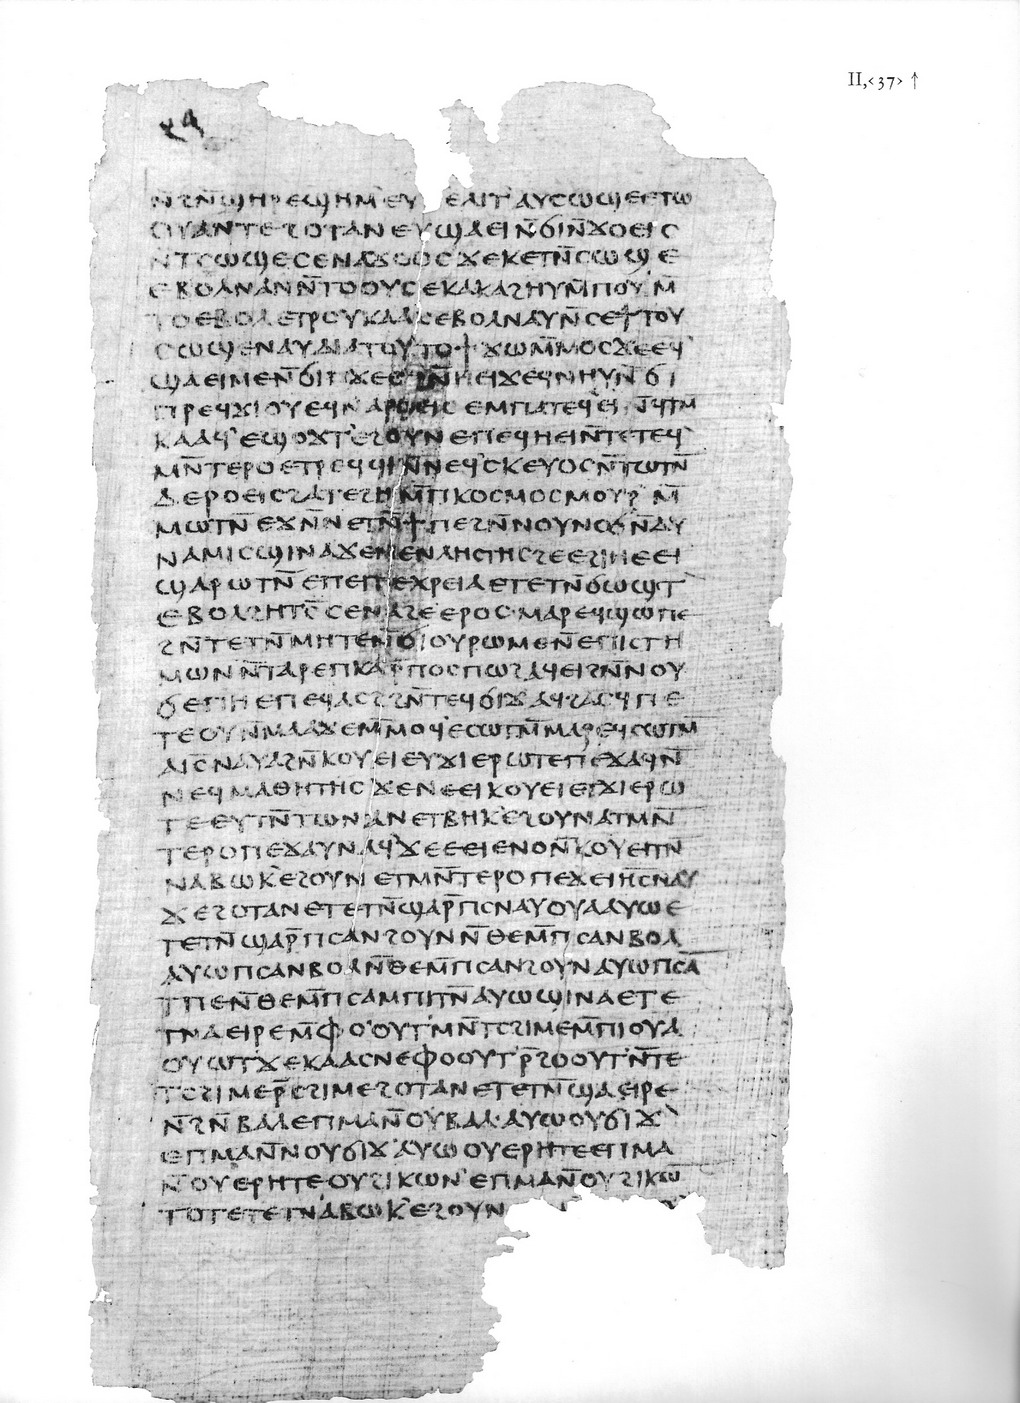 ⲛ̄ϩⲛ̄ϣⲏⲣⲉϣⲏⲙ'ⲉⲩ ⲉⲗⲓⲧ'ⲁⲩⲥⲱϣⲉⲉⲧⲱ
ⲟⲩⲁⲛⲧⲉϩⲟⲧⲁⲛⲉⲩϣⲁⲉⲓⲛ̄ϭⲓⲛ̄ϫⲟⲉⲓⲥ
ⲛⲧⲥⲱϣⲉⲥⲉⲛⲁϫⲟⲟⲥϫⲉⲕⲉⲧⲛ̄ⲥⲱϣⲉ
ⲉⲃⲟⲗⲛⲁⲛⲛ̄ⲧⲟⲟⲩⲥⲉⲕⲁⲕⲁϩⲏⲩⲙ̄ⲡⲟⲩⲙ̄
ⲧⲟⲉⲃⲟⲗⲉⲧⲣⲟⲩⲕⲁⲁⲥⲉⲃⲟⲗⲛⲁⲩⲛ̄ⲥⲉϯⲧⲟⲩ
ⲥⲱϣⲉⲛⲁⲩⲇⲓⲁⲧⲟⲩⲧⲟϯϫⲱⲙ̄ⲙⲟⲥϫⲉⲉϥ
ϣⲁⲉⲓⲙⲉⲛ̄ϭⲓⲡϫⲉⲥϩⲛ̄ⲏⲉⲓϫⲉϥⲛⲏⲩⲛ̄ϭⲓ
ⲡⲣⲉϥϫⲓⲟⲩⲉϥⲛⲁⲣⲟⲉⲓⲥⲉⲙⲡⲁⲧⲉϥ'ⲉⲓⲛ̄ϥⲧⲙ
ⲕⲁⲁϥ'ⲉϣⲟϫⲧ'ⲉϩⲟⲩⲛⲉⲡⲉϥⲏⲉⲓⲛ̄ⲧⲉⲧⲉϥ'
ⲙⲛ̄ⲧⲉⲣⲟⲉⲧⲣⲉϥϥⲓⲛ̄ⲛⲉϥ'ⲥⲕⲉⲩⲟⲥⲛ̄ⲧⲱⲧⲛ̄
ⲇⲉⲣⲟⲉⲓⲥϩⲁⲧⲉϩⲏⲙ̄ⲡⲕⲟⲥⲙⲟⲥⲙⲟⲩⲣ'ⲙ̄
ⲙⲱⲧⲛ̄ⲉϫⲛ̄ⲛⲉⲧⲛ̄ϯⲡⲉϩⲛ̄ⲛⲟⲩⲛⲟϭⲛ̄ⲇⲩ
ⲛⲁⲙⲓⲥϣⲓⲛⲁϫⲉⲛⲉⲛⲗⲏⲥⲧⲏⲥϩⲉⲉϩⲓⲏⲉⲉⲓ
ϣⲁⲣⲱⲧⲛ̄ⲉⲡⲉⲓⲧⲉⲭⲣⲉⲓⲁⲉⲧⲉⲧⲛ̄ϭⲱϣⲧ'
ⲉⲃⲟⲗϩⲏⲧⲥ̄ⲥⲉⲛⲁϩⲉⲉⲣⲟⲥ·ⲙⲁⲣⲉϥϣⲱⲡⲉ
ϩⲛ̄ⲧⲉⲧⲛ̄ⲙⲏⲧⲉⲛ̄ϭⲓⲟⲩⲣⲱⲙⲉⲛ̄ⲉⲡⲓⲥⲧⲏ
ⲙⲱⲛⲛ̄ⲧⲁⲣⲉⲡⲕⲁⲣⲡⲟⲥⲡⲱϩⲁϥⲉⲓϩⲛ̄ⲛⲟⲩ
ϭⲉⲡⲏⲉⲡⲉϥⲁⲥϩϩⲛ̄ⲧⲉϥϭⲓϫⲁϥϩⲁⲥϥⲡⲉ
ⲧⲉⲟⲩⲛ̄ⲙⲁⲁϫⲉⲙ̄ⲙⲟϥ'ⲉⲥⲱⲧⲙ̄ⲙⲁⲣⲉϥⲥⲱⲧⲙ
ⲁⲓ̄ⲥ̄ⲛⲁⲩⲁϩⲛ̄ⲕⲟⲩⲉⲓⲉⲩϫⲓⲉⲣⲱⲧⲉⲡⲉϫⲁϥⲛ̄
ⲛⲉϥⲙⲁⲑⲏⲧⲏⲥϫⲉⲛⲉⲉⲓⲕⲟⲩⲉⲓⲉⲧϫⲓⲉⲣⲱ
ⲧⲉⲉⲩⲧⲛ̄ⲧⲱⲛⲁⲛⲉⲧⲃⲏⲕ'ⲉϩⲟⲩⲛⲁⲧⲙⲛ̄
ⲧⲉⲣⲟⲡⲉϫⲁⲩⲛⲁϥ'ϫⲉⲉⲉⲓⲉⲛⲟⲛ̄ⲕⲟⲩⲉⲓⲧⲛ̄
ⲛⲁⲃⲱⲕ'ⲉϩⲟⲩⲛⲉⲧⲙⲛ̄ⲧⲉⲣⲟⲡⲉϫⲉⲓⲏ̄ⲥ̄ⲛⲁⲩ
ϫⲉϩⲟⲧⲁⲛⲉⲧⲉⲧⲛ̄ϣⲁⲣ̄ⲡⲥⲛⲁⲩⲟⲩⲁⲁⲩⲱⲉ
ⲧⲉⲧⲛ̄ϣⲁⲣ̄ⲡⲥⲁⲛϩⲟⲩⲛⲛ̄ⲑⲉⲙ̄ⲡⲥⲁⲛⲃⲟⲗ
ⲁⲩⲱⲡⲥⲁⲛⲃⲟⲗⲛ̄ⲑⲉⲙ̄ⲡⲥⲁⲛϩⲟⲩⲛⲁⲩⲱⲡⲥⲁ
ⲧⲡⲉⲛ̄ⲑⲉⲙ̄ⲡⲥⲁⲙⲡⲓⲧⲛ̄ⲁⲩⲱϣⲓⲛⲁⲉⲧⲉ
ⲧⲛⲁⲉⲓⲣⲉⲙ̄ⲫⲟ'ⲟⲩⲧ'ⲙⲛ̄ⲧⲥϩⲓⲙⲉⲙ̄ⲡⲓⲟⲩⲁ
ⲟⲩⲱⲧ'ϫⲉⲕⲁⲁⲥⲛⲉⲫⲟⲟⲩⲧ'ⲣ̄ϩⲟⲟⲩⲧ'ⲛ̄ⲧⲉ
ⲧⲥϩⲓⲙⲉⲣ̄ⲥϩⲓⲙⲉϩⲟⲧⲁⲛⲉⲧⲉⲧⲛ̄ϣⲁⲉⲓⲣⲉ
ⲛ̄ϩⲛ̄ⲃⲁⲗⲉⲡⲙⲁⲛ̄ⲟⲩⲃⲁⲗ·ⲁⲩⲱⲟⲩϭⲓϫ'
ⲉⲡⲙⲁⲛ̄ⲛⲟⲩϭⲓϫ'ⲁⲩⲱⲟⲩⲉⲣⲏⲧⲉⲉⲡⲙⲁ
ⲛ̄ⲟⲩⲉⲣⲏⲧⲉⲟⲩϩⲓⲕⲱⲛ'ⲉⲡⲙⲁⲛ̄ⲟⲩϩⲓⲕⲱ
ⲧⲟⲧⲉⲧⲉⲧⲛⲁⲃⲱⲕ'ⲉϩⲟⲩⲛ
II,‹37› ↑